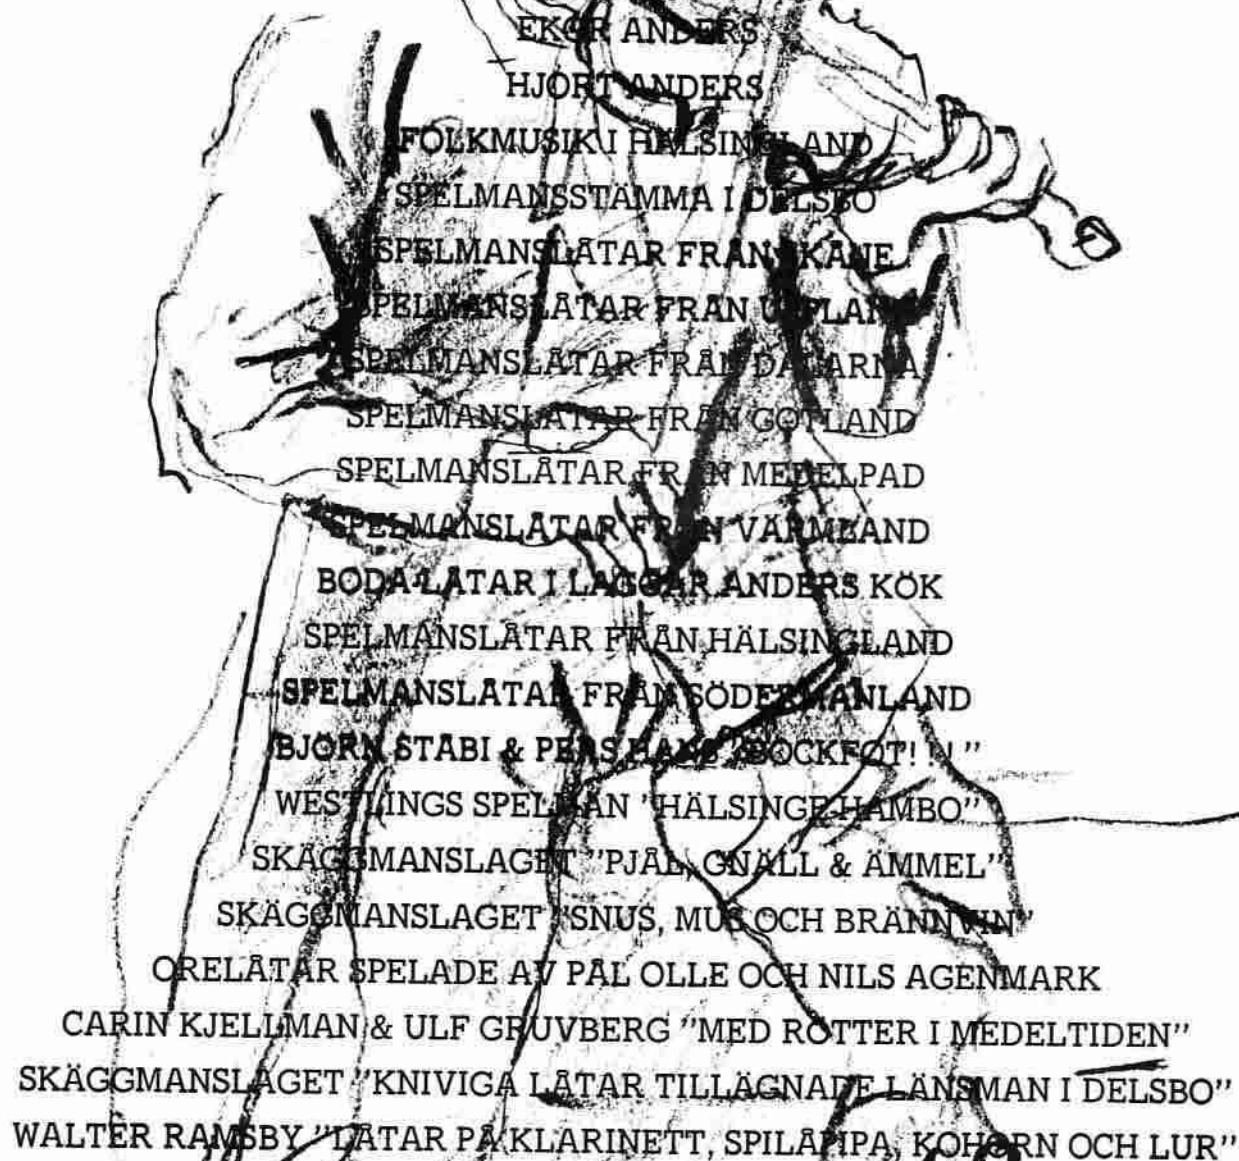 EKOR ANDERS
HJORT ANDERS
FOLKMUSIK I HÄLSINGLAND
SPELMANSSTÄMMA I DELSBO
SPELMANSLÅTAR FRÅN SKÅNE
SPELMANSLÅTAR FRÅN UPPLAND
SPELMANSLÅTAR FRÅN DALARNA
SPELMANSLÅTAR FRÅN GOTLAND
SPELMANSLÅTAR FRÅN MEDELPAD
SPELMANSLÅTAR FRÅN VÄRMLAND
BODA-LÅTAR I LAGGAR ANDERS KÖK
SPELMANSLÅTAR FRÅN HÄLSINGLAND
SPELMANSLÅTAR FRÅN SÖDERMANLAND
BJÖRN STÅBI & PERS HANS "BOCKFOT!!!"
WESTLINGS SPELMÄN "HÄLSINGE-HAMBO"
SKÄGGMANSLAGET "PJÅL, GNÄLL & ÄMMEL"
SKÄGGMANSLAGET "SNUS, MUS OCH BRÄNNVIN"
ORELÅTAR SPELADE AV PÅL OLLE OCH NILS AGENMARK
CARIN KJELLMAN & ULF GRUVBERG "MED RÖTTER I MEDELTIDEN"
SKÄGGMANSLAGET "KNIVIGA LÅTAR TILLÄGNADE LÄNSMAN I DELSBO"
WALTER RAMSBY "LÅTAR PÅ KLARINETT, SPILÅPIPA, KOHORN OCH LUR"